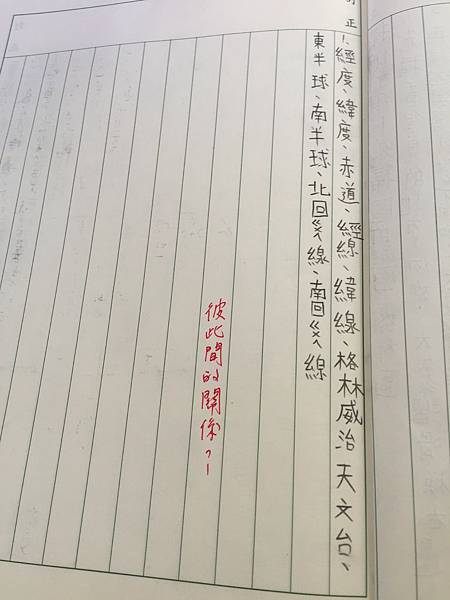 訂正
1.經度、緯度、赤道、經線、緯線、格林威治天文台、
東半球、南半球、北回ㄍㄨㄟ線、南回ㄍㄨㄟ線
彼此間的關係?